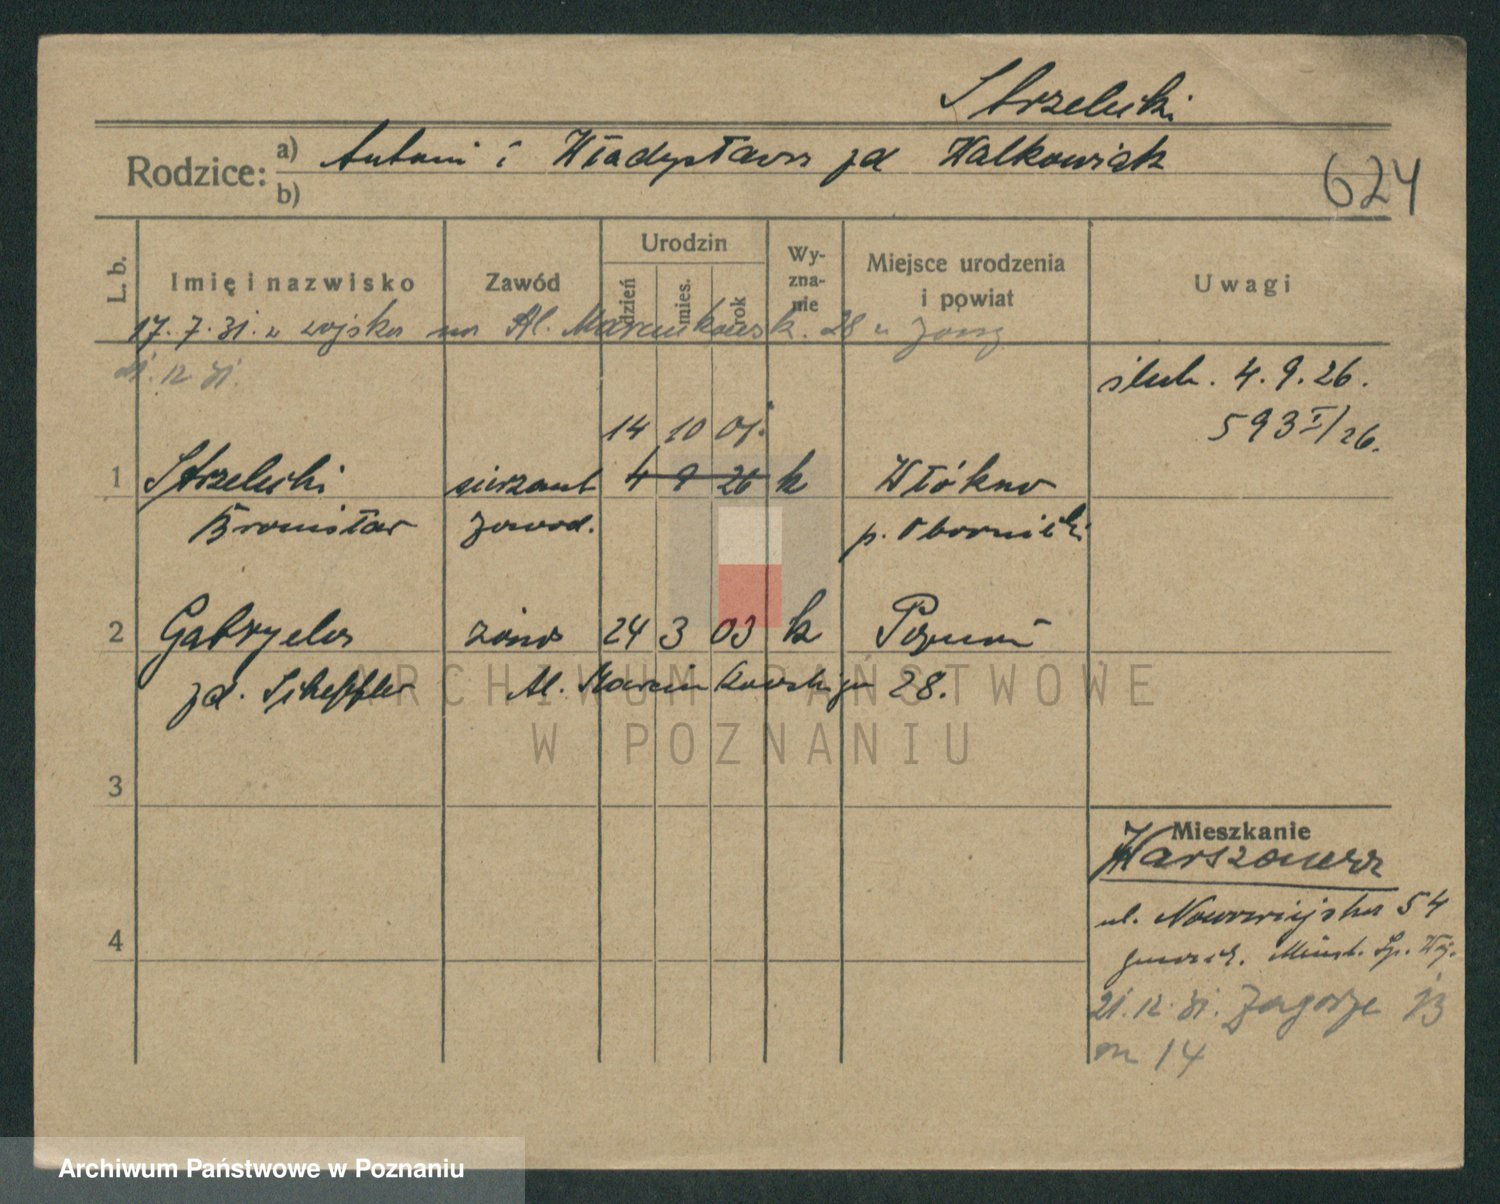 Strzelecki
Rodzice: a) Antoni i Władysława zd Walkowiak
b)
624
L. b. Imię i nazwisko Zawód Urodzin dzień mies. rok Wyznanie Miejsce urodzenia i powiat Uwagi
17. 7. 31. z wojska na Al. Marcinkowsk. 28 z żoną
21. 12. 31.
ślub. 4. 9. 26.
593 I/26.
14 10 01.
1 Strzelecki sierżant 4 9 26 k Włókno
Bronisław zawod. p. Oborniki
2 Gabryela żona 24 3 03 k Poznań
zd. Scheffler Al. Marcinkowskiego 28.
ARCHIWUM PAŃSTWOWE
W POZNANIU
3
Mieszkanie
Warszawa
ul. Nowowiejska 54
4
Minist. Sp. Woj.
21. 12. 31. Zagórze 13
m 14
Archiwum Państwowe w Poznaniu